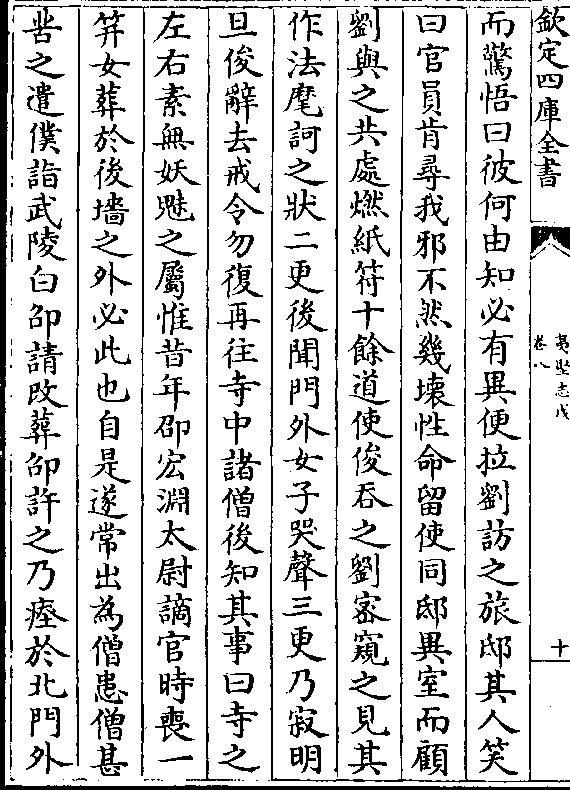 欽定四庫全書
夷堅志戊
卷八
十
而驚悟曰彼何由知必有異便拉劉訪之旅邸其人笑
曰官員肯尋我邪不然幾壊性命留使同邸異室而顧
劉與之共處燃紙符十餘道使俊吞之劉宻窺之見其
作法麾訶之狀二更後聞門外女子哭聲三更乃寂明
旦俊辭去戒令勿復再往寺中諸僧後知其事曰寺之
左右素無妖魅之屬惟昔年邵宏淵太尉謫官時喪一
笄女葬於後墻之外必此也自是遂常出為僧患僧甚
苦之遣僕詣武陵白邵請改葬邵許之乃瘞於北門外